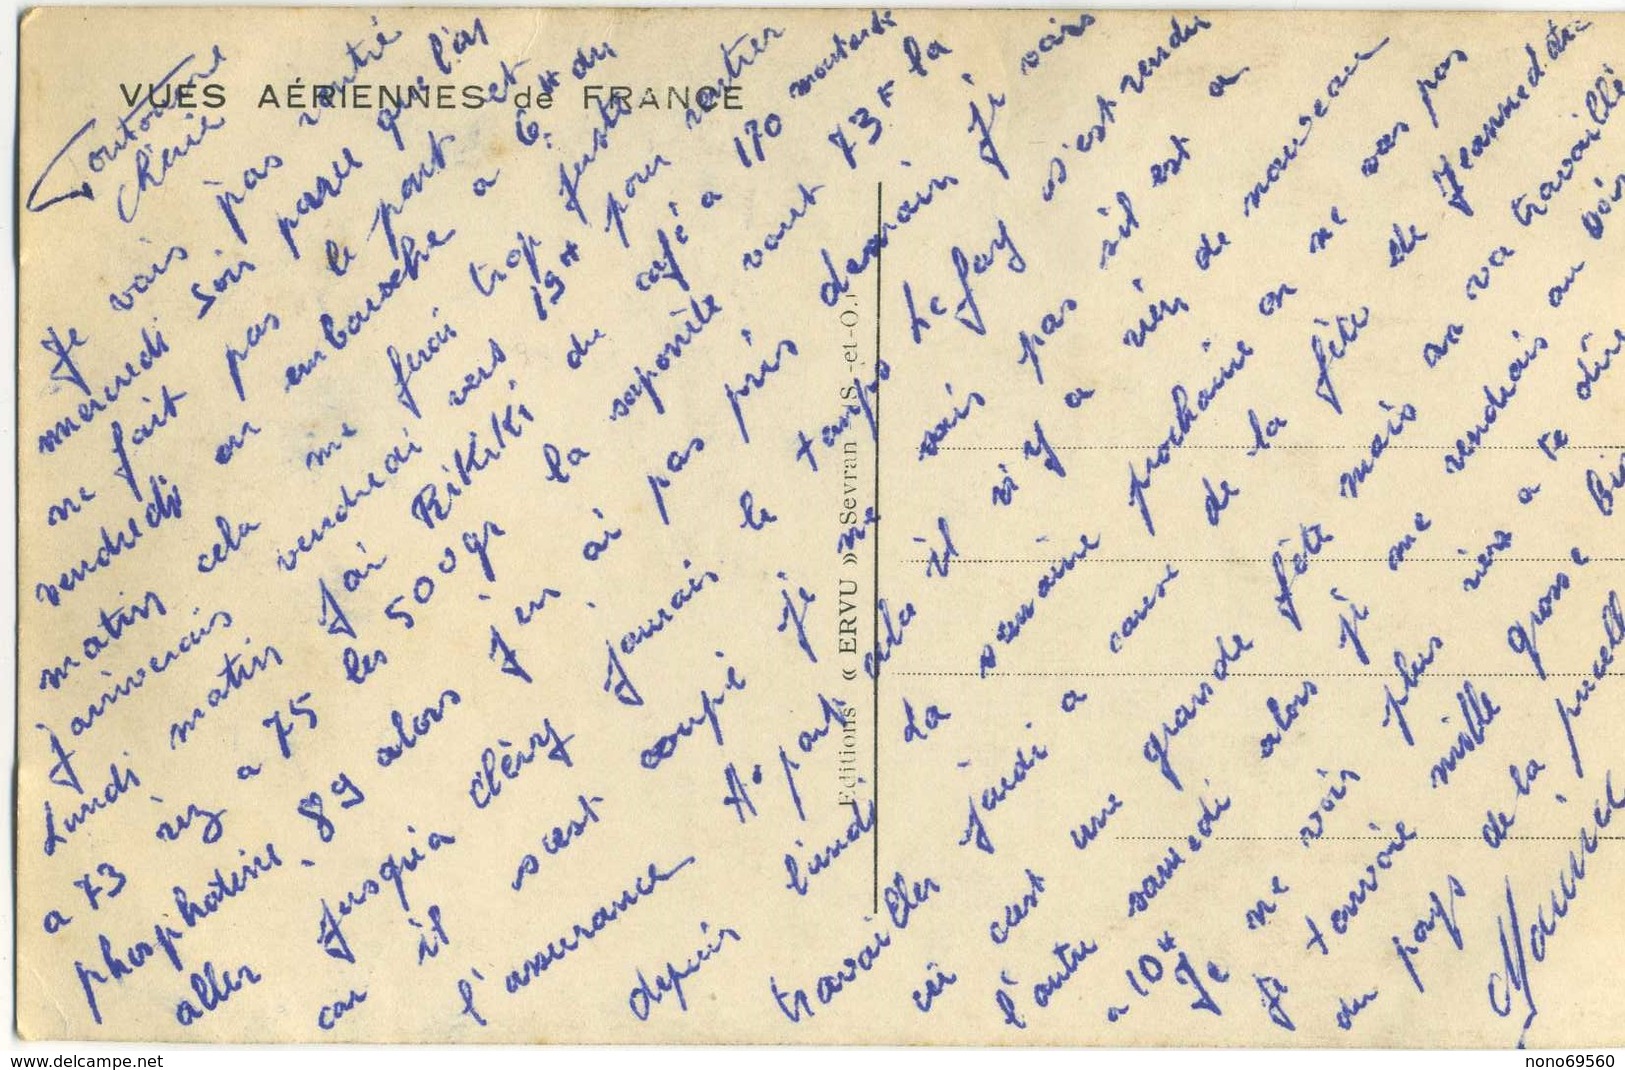 VUES AÉRIENNES de FRANCE
Toutoune
chérie
Je vais pas rentré
mercredi soir parce que l'as
ne fait pas le pont et
vendredi on embauche a 6H du
matin cela me ferai trop juste
j'arriverais vendredi vers 19H pour rentrer
Lundi matin J'ai RiKiKi du café a 170 moutarde
a 73 riz a 75 les 500gr la saponite vaut 73F la
phosphatine 89 alors j'en ai pas pris demain je vais
aller jusqu'a Cléry j'aurais le temps Le Gay s'est rendu
car il s'est coupé je ne sais pas s'il est a
l'assurance
depuis lundi A part cela il n'y a rien de nouveau
La semaine prochaine on ne vas pas
travailler jeudi a cause de la fête de Jeanne d'arc
ici c'est une grande fête mais on va travaillé
l'autre samedi alors je me rendrais au
a 10H
Je ne vois plus rien a te dire
Je t'envoie mille grosse
du pays de la pucelle
Maurice
Editions « ERVU » Sevran (S.-et-O.)
nono69560
www.delcampe.net